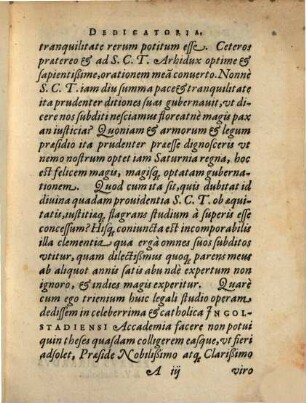 DEDICATORIA.
tranquilitate rerum potitum esse. Ceteros
prætereo & ad S. C. T. Arhidux optime &
sapientissime, orationem meā conuerto. Nonnè
S. C. T. iam diu summa pace & tranquilitate
ita prudenter ditiones suas gubernauit, vt di
cere nos subditi nesciamus floreatnè magis pax
an iusticia? Quoniam & armorum & legum
præsidio ita prudenter præesse dignosceris vt
nemo nostrum optet iam Saturnia regna, hoc
est felicem magis, magisq́; optatam guberna-
tionem. Quod cum ita sit, quis dubitat id
diuina quadam prouidentia S. C. T. ob æqui-
tatis, iustitiæq́; flagrans studium à superis esse
concessum? Hisq́; coniuncta est incomporabilis
illa clementia qua ergà omnes suos subditos
vtitur, quam dilectissimus quoq́; parens meus
ab aliquot annis satis abundè expertum non
ignoro, & indies magis experitur. Quarè
cum ego trienium huic legali studio operam
dedissem in celeberrima & catholica INGOL-
STADIENSI Accademia facere non potui
quin theses quasdam colligerem easque, vt fieri
adsolet, Præside Nobilissimo atq́; Clarissimo
A iij viro